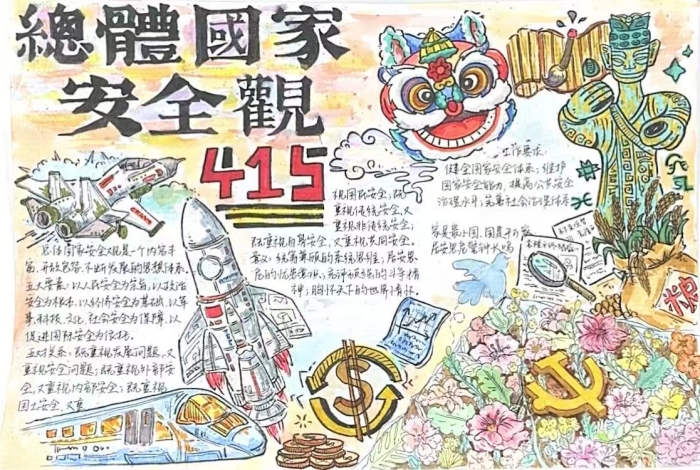 總體國家
安全觀
415
总体国家安全观是一个内容丰
富、开放包容、不断发展的思想体系。
五大要素：以人民安全为宗旨，以政治
安全为根本，以经济安全为基础，以军
事、科技、文化、社会安全为保障，以
促进国际安全为依托。
五对关系：既重视发展问题，又
重视安全问题；既重视外部安
全，又重视内部安全；既重视
国土安全，又重
视国民安全；既
重视传统安全，又
重视非传统安全；
既重视自身安全，又重视共同安全。
意识：统筹兼顾的系统思维；居安思
危的忧患意识；顽强的斗争精
神；胸怀天下的世界情怀。
工作要求：
健全国家安全体系；维护
国家安全能力，提高公共安全
治理水平；完善社会治理体系
家是最小国，国是千万家
居安思危警钟长鸣
粮